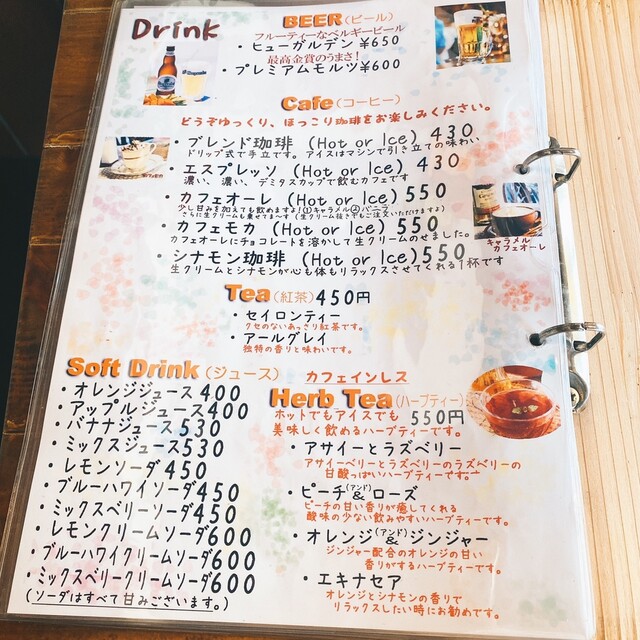 Drink
BEER(ビール)
フルーティーなベルギービール
・ヒューガルデン ¥650
最高金賞のうまさ!
・プレミアムモルツ ¥600
Cafe(コーヒー)
どうぞゆっくり、ほっこり珈琲をお楽しみください。
・ブレンド珈琲 (Hot or Ice) 430
ドリップ式で手立てです。アイスはマシンで引き立ての味わい
・エスプレッソ (Hot or Ice) 430
濃い、濃い、デミタスカップで飲むカフェです
・カフェオーレ (Hot or Ice) 550
少し甘みを加えても飲めますよ!①キャラメル②バニラ
さらに生クリームも乗せてま〜す(生クリーム抜き でもご注文いただけますよ)
・カフェモカ (Hot or Ice) 550
カフェオーレにチョコレートを溶かして生クリームのせました。
・シナモン珈琲 (Hot or Ice) 550
生クリームとシナモンが心も体もリラックスさせてくれる1杯です
キャラメル
カフェオーレ
Tea(紅茶) 450円
・セイロンティー
クセのないあっさり紅茶です。
・アールグレイ
独特の香りと味わいです。
Soft Drink(ジュース)
・オレンジジュース 400
・アップルジュース 400
・バナナジュース 530
・ミックスジュース 530
・レモンソーダ 450
・ブルーハワイソーダ 450
・ミックスベリーソーダ 450
・レモンクリームソーダ 600
・ブルーハワイクリームソーダ 600
・ミックスベリークリームソーダ 600
(ソーダはすべて甘みございます。)
カフェインレス
Herb Tea(ハーブティー)
ホットでもアイスでも 550円
美味しく飲めるハーブティーです。
・アサイーとラズベリー
アサイーベリーとラズベリーのラズベリーの
甘酸っぱいハーブティーです。
・ピーチ(アンド)&ローズ
ピーチの甘い香りが癒してくれる
酸味の少ない飲みやすいハーブティーです。
・オレンジ(アンド)&ジンジャー
ジンジャー配合のオレンジの甘い
香りがするハーブティーです。
・エキナセア
オレンジとシナモンの香りで
リラックスしたい時にお勧めです。